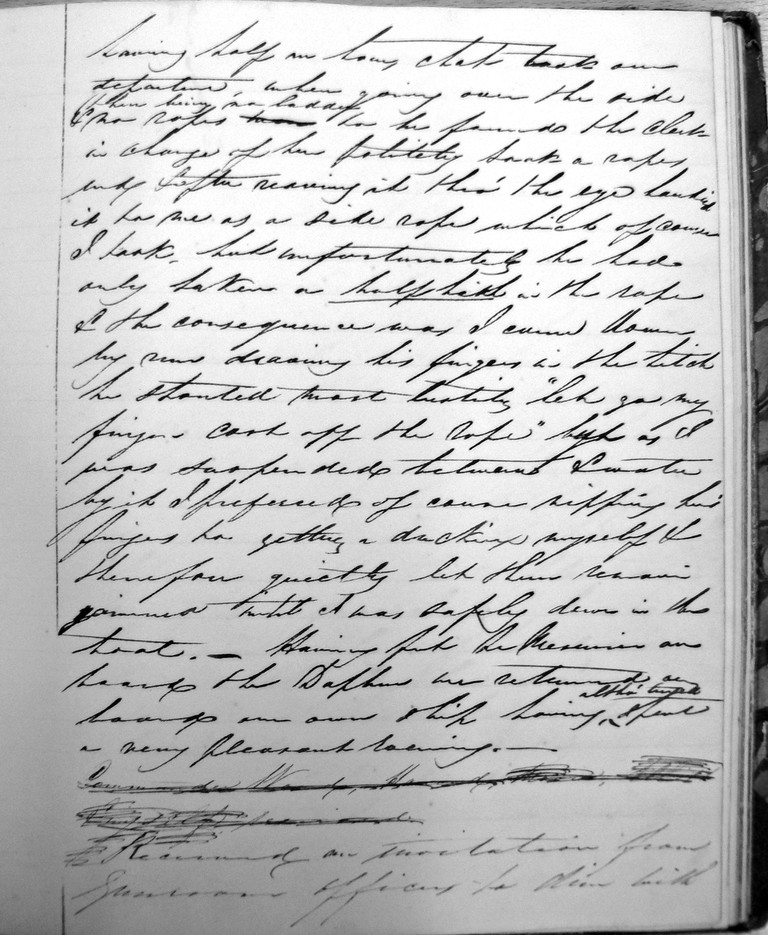 having half an hours chat took our
departure, when going over the side
there being no ladder
& no ropes to he found the clerk
in charge of her politely took a rope
and after reaving it thro' the eye handed
it to me as a side rope which of course
I took, but unfortunately he had
only taken a half hitch in the rope
& the consequence was I came down
by run drawing his fingers in the hitch
he shouted most lustily "let go my
fingers cast off the rope" but as I
was suspended between & water
by it I prefered of course nipping his
fingers to getting a ducking myself &
therefore quietly let them remain
jammed until I was safely down in the
boat. — Having put on
board the Daphne we returned on
altho' wet
board our own ship having spent
a very pleasant evening. —
Received an invitation from
Gunroom officers to dine with